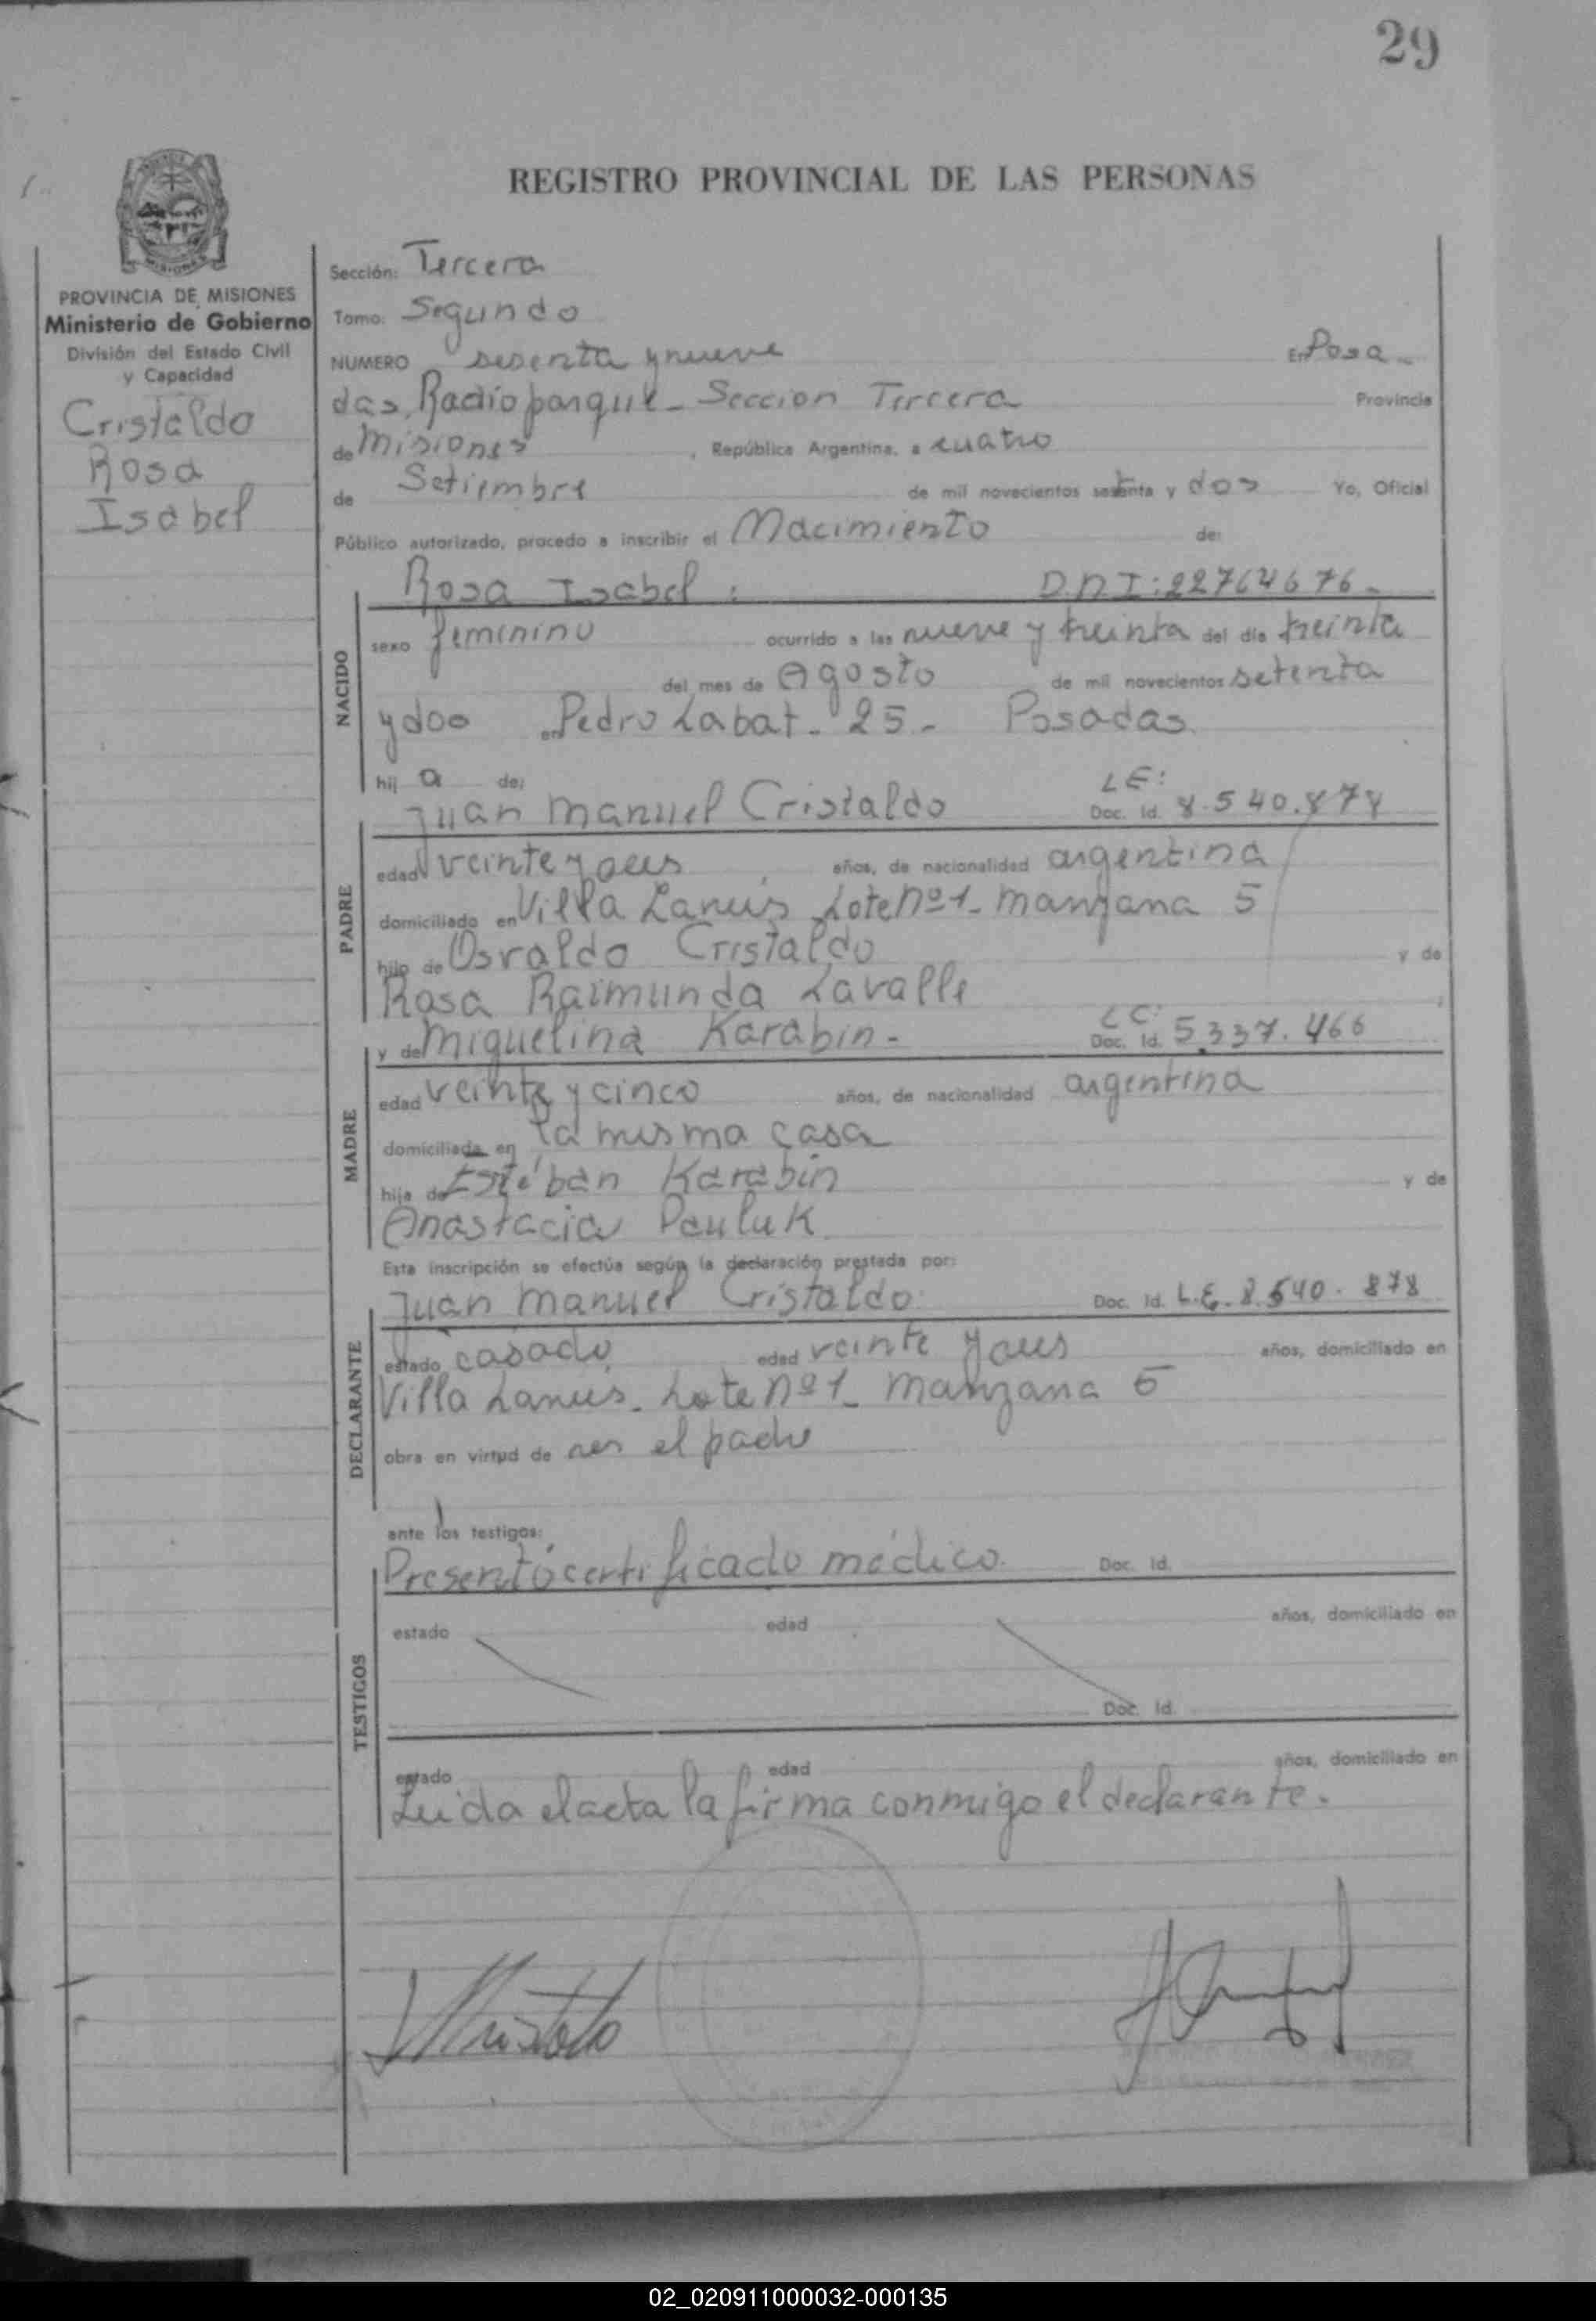 29
REGISTRO PROVINCIAL DE LAS PERSONAS
PROVINCIA DE MISIONES
Ministerio de Gobierno
División del Estado Civil
y Capacidad
Cristaldo
Rosa
Isabel
Sección: Tercera
Tomo: Segundo
NUMERO sesenta y nueve En Posa-
das, Radioparque - Seccion Tercera Provincia
de Misiones, República Argentina, a cuatro
de Setiembre de mil novecientos setenta y dos Yo, Oficial
Público autorizado, procedo a inscribir el Nacimiento de:
Rosa Isabel: D.N.I: 22764676-
NACIDO
sexo femenino ocurrido a las nueve y treinta del día treinta
del mes de Agosto de mil novecientos setenta
y dos en Pedro Labat - 25 - Posadas
hij a de:
Juan Manuel Cristaldo LE: Doc. Id. 8.540.878
PADRE
edad veinte y años, de nacionalidad argentina
domiciliado en Villa Lanús Lote nº 1 - manzana 5
hijo de Osvaldo Cristaldo y de
Rosa Raimunda Lavalle
y de Miguelina Karabin - LC: Doc. Id. 5.337.466
MADRE
edad veinte y cinco años, de nacionalidad argentina
domiciliada en la misma casa
hija de Estéban Karabin y de
Anastacia Pauluk
Esta inscripción se efectúa según la declaración prestada por:
Juan Manuel Cristaldo Doc. Id. L.E. 8.540.878
DECLARANTE
estado casado edad veinte y años, domiciliado en
Villa Lanús - Lote nº 1 - Manzana 5
obra en virtud de ser el padre
ante los testigos:
Presentó certificado médico Doc. Id.
TESTIGOS
estado edad años, domiciliado en
Doc. Id.
estado edad años, domiciliado en
Leida el acta la firma conmigo el declarante.
02_020911000032-000135